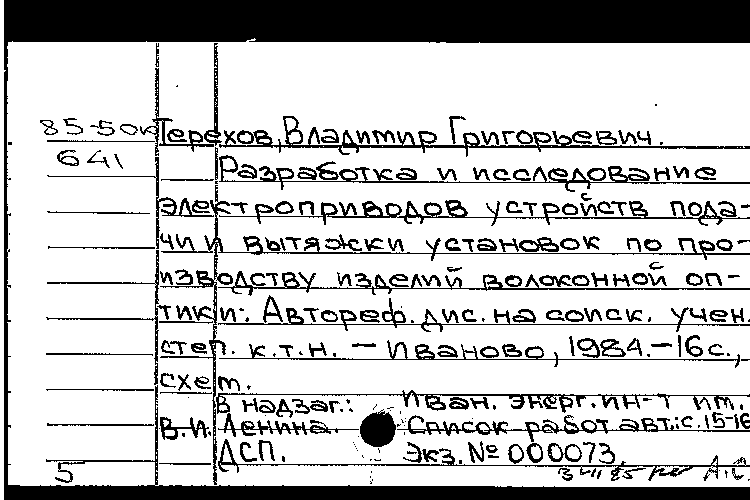 85-50к Терехов, Владимир Григорьевич.
641 Разработка и исследование
электроприводов устройств пода-
чи и вытяжки установок по про-
изводству изделий волоконной оп-
тики: Автореф. дис. на соиск. учен.
степ. к.т.н. - Иваново, 1984.-16с.,
схем.
В надзаг.: Иван. энерг. ин-т им.
В.И. Ленина. Список работ авт.: с. 15-16
ДСП. Экз. № 000073
5